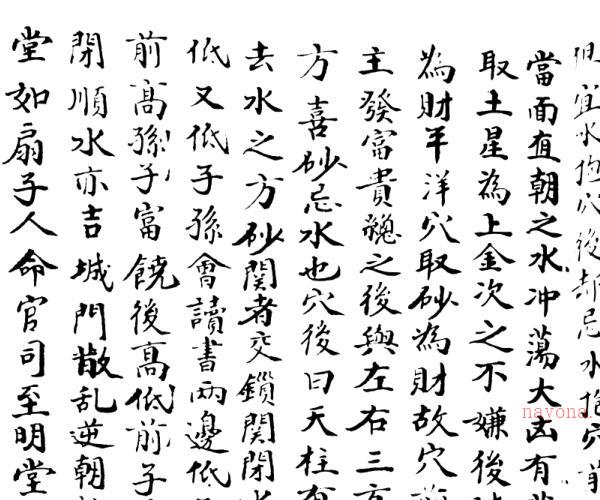 宜水抱穴後却忌水抱穴
當面直朝之水冲蕩大凶有
取土星為上金次之不嫌後
為財平洋穴取砂為財故穴
主發富貴總之後與左右三方
方喜砂忌水也穴後曰天柱有
去水之方砂関者交鎖関閉
低又低子孫會讀書兩邊低
前高孫子富饒後高低前子
閉順水亦吉城門散乱逆朝
堂如扇子人命官司至明堂
nayona.